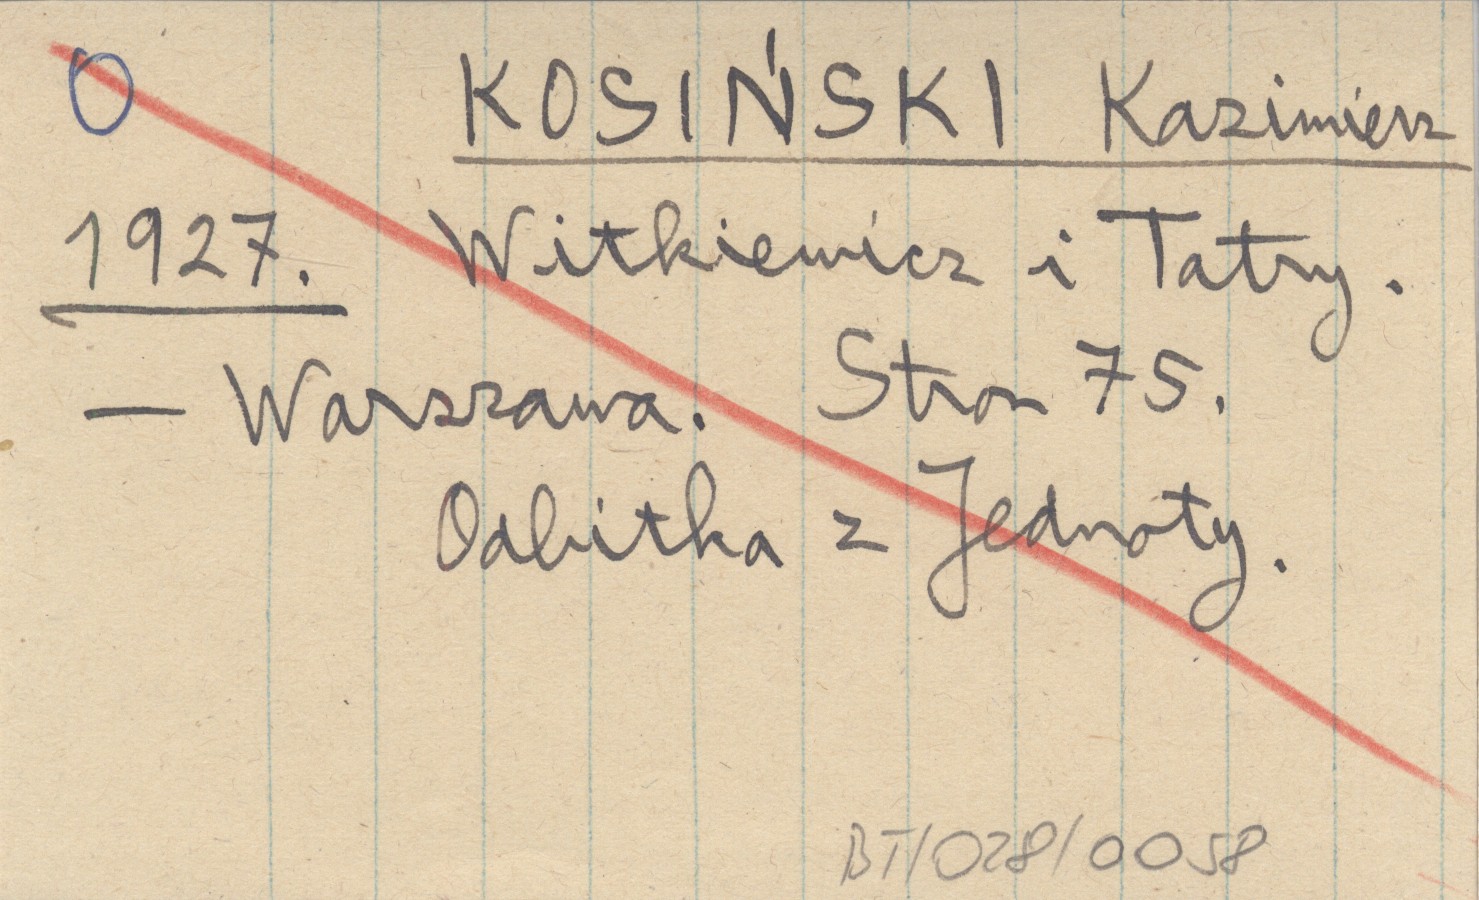 O KOSIŃSKI Kazimierz
1927. Witkiewicz i Tatry.
— Warszawa. Stron 75.
Odbitka z Jednoty.
BT/028/0058